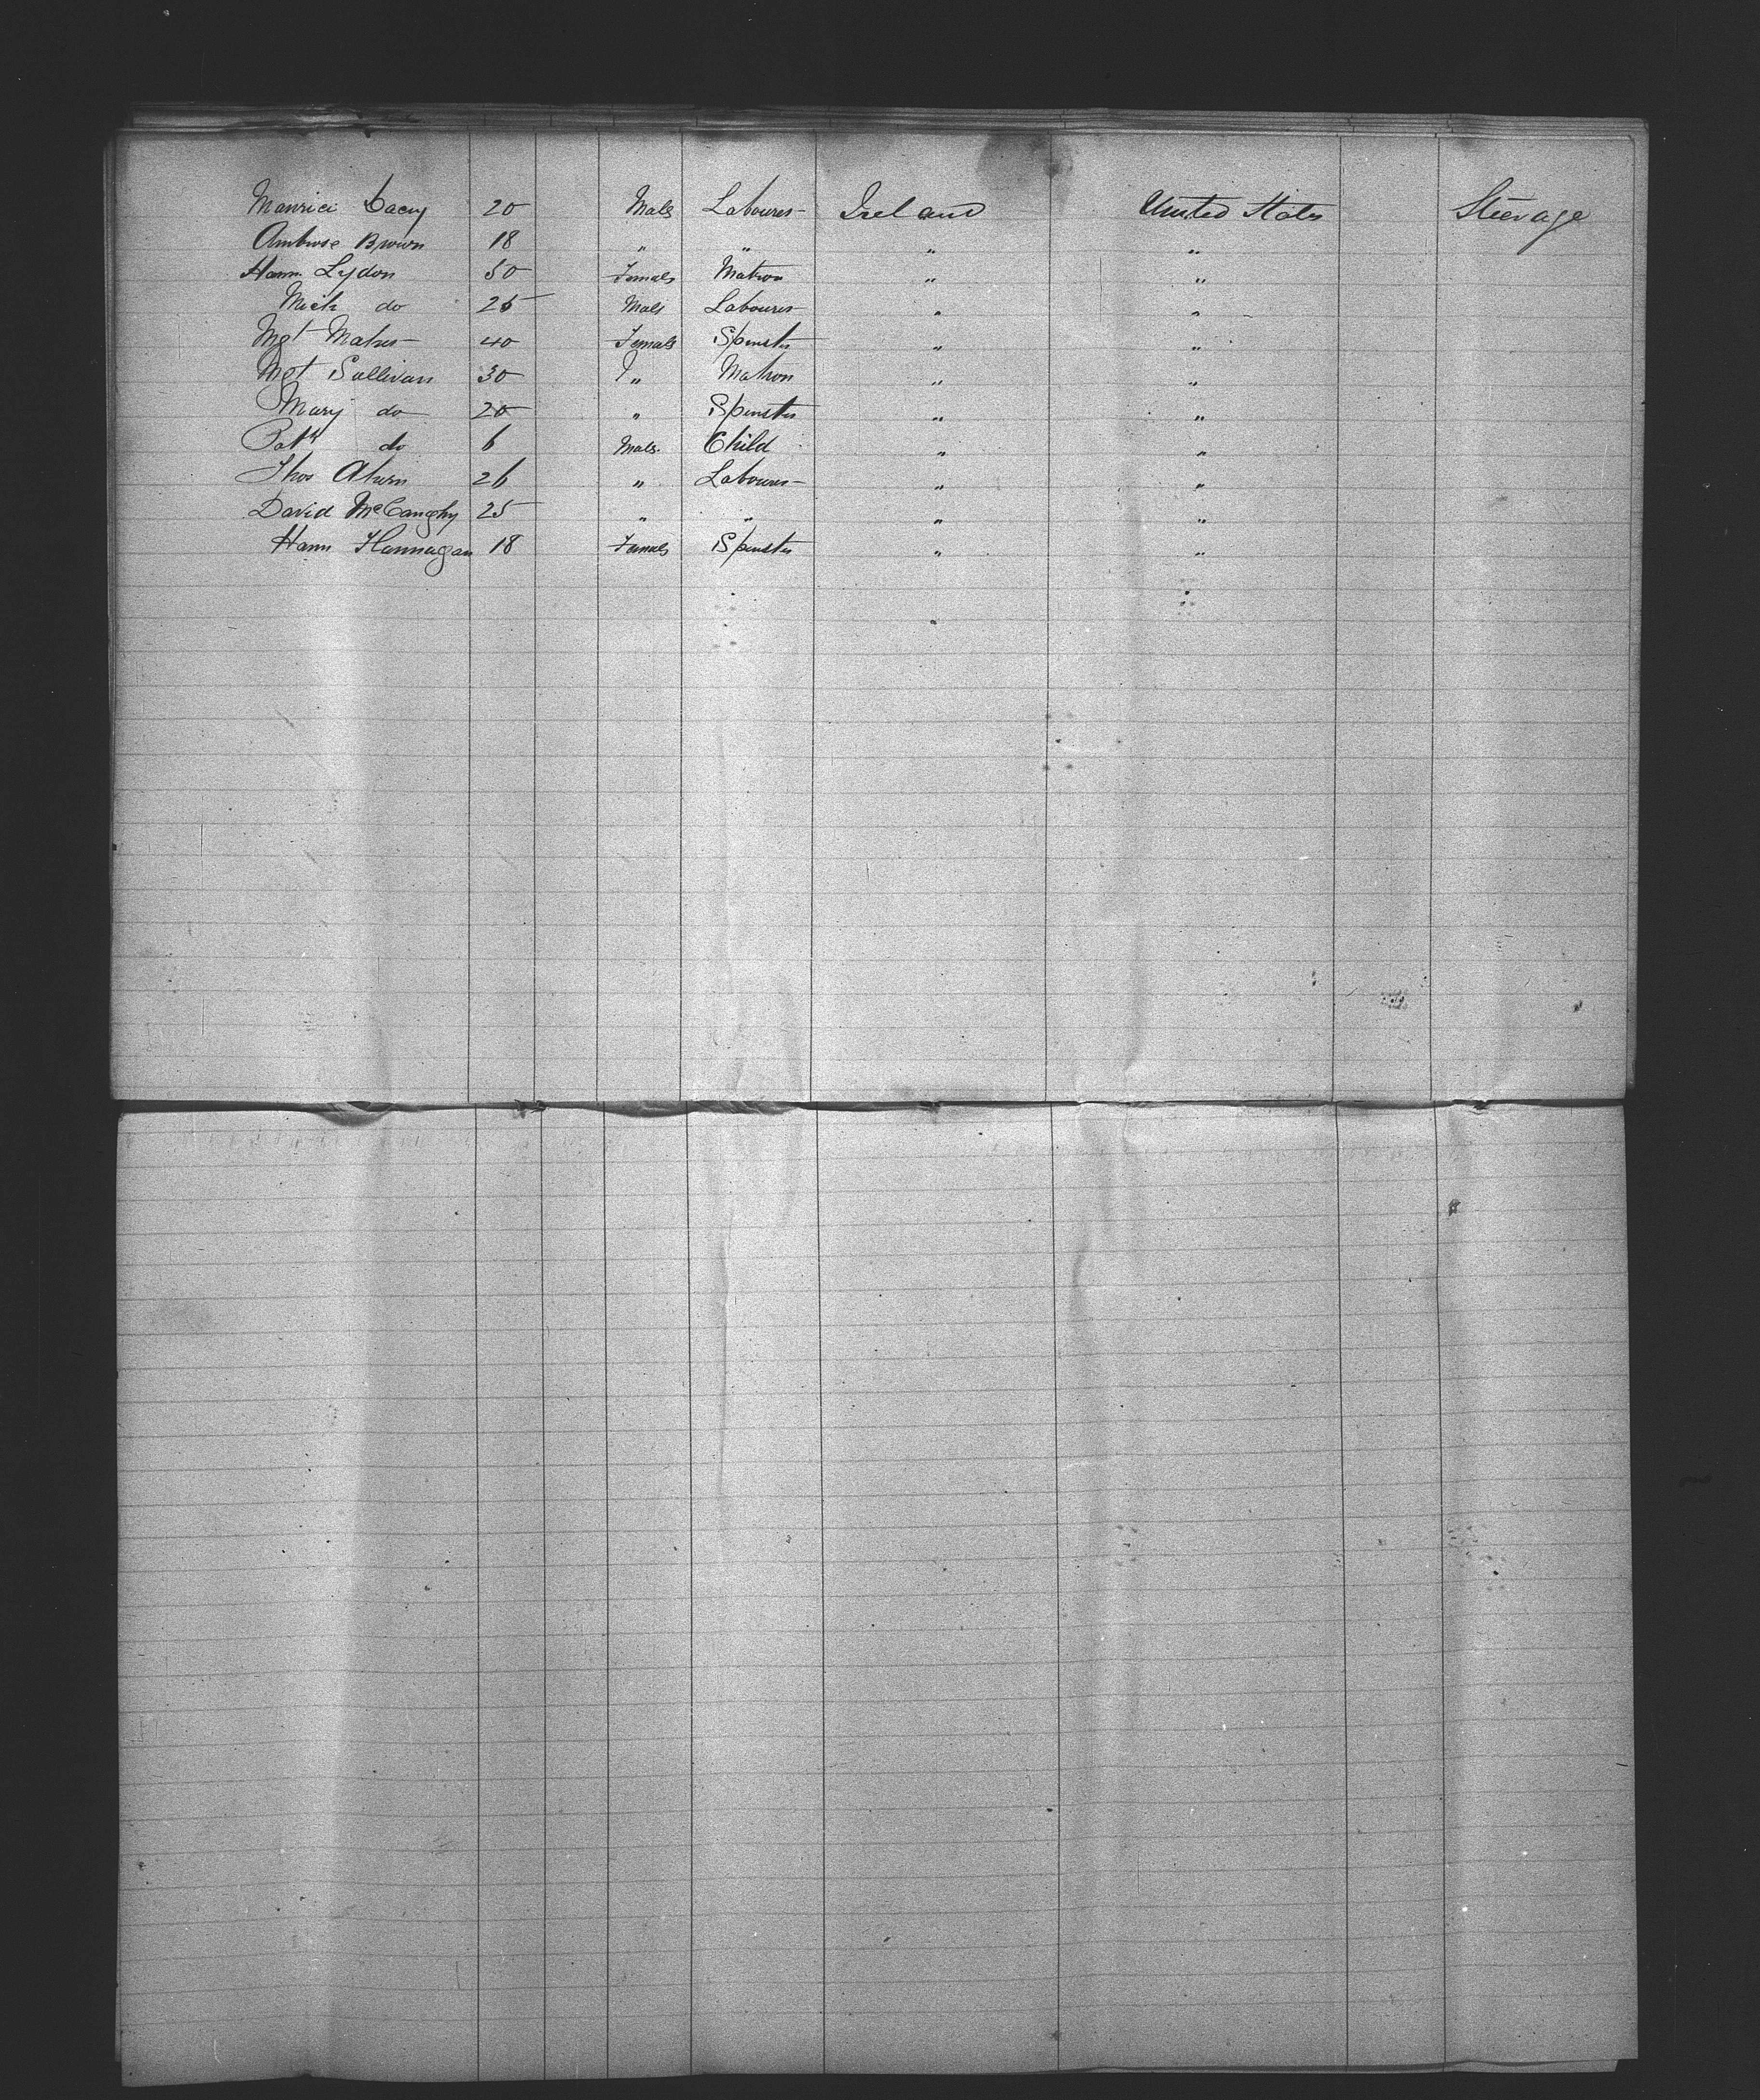 Maurice Dacey 20 Male Labourer Ireland United States Steerage
Ambrose Brown 18 " " " "
Hann Lydon 50 Female Matron " "
Mich do 25 Male Labourer " "
Mgt Maher 40 Female Spinster " "
Mgt Sullivan 30 " Matron " "
Mary do 20 " Spinster " "
Patk do 6 Male Child " "
Thos Ahern 26 " Labourer " "
David McCaughy 25 " " " "
Hann Hannagan 18 Female Spinster " "